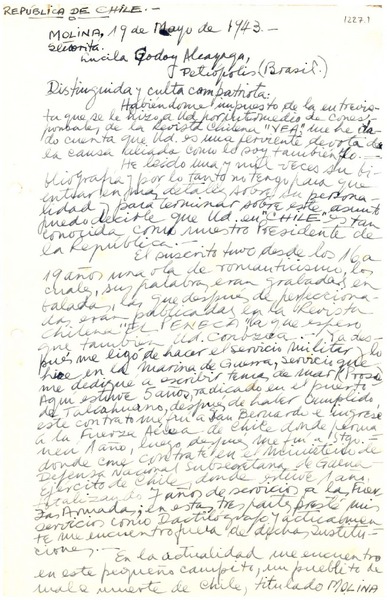 REPUBLICA DE CHILE.-
1227.1
MOLINA, 19 de Mayo de 1943.-
Señorita.
Lucila Godoy Alcayaga,
Petrópolis (Brasil.)
Distinguida y culta compatriota:
Habiéndome impuesto de la entrevis
ta que se le hizo a Ud. por intermedio de corres
ponsales de la Revista chilena "VEA", me he
dado cuenta que Ud. es una ferviente devota de
la causa como Ud. soy también yo.-
He leído una y mil veces su bi
bliografía y por lo tanto no tengo para que
entrar en más detalles sobre su perso
nalidad y para terminar sobre este asunto
puedo decirle que Ud. en "CHILE" es tan
conocida como nuestro Presidente de
la República.-
El suscrito tuvo desde los 16 a
19 años una ola de romanticismo, los
cuales, sus palabras eran grabadas en
baladas, las que después de perfecciona
das eran publicadas en la Revista
chilena "EL PENECA" la que espero
que también Ud. conozca.- Ya des
pués me ligó de hacer el servicio militar y lo
hice en la Marina de Guerra, servicio que
me dediqué a escribir tema de mar (Prosa)
Aquí estuve 5 años, radicado en el puerto
de Talcahuano, después de haber cumplido
este contrato me fuí a San Bernardo e ingresé
a la Fuerza Aérea de Chile donde perma
necí 1 año, luego después me fuí a Stgo.-
donde me contraté en el Ministerio de
Defensa Nacional Subsecretaría de Guerra
Ejército de Chile, donde estuve 1 año,
7 años de servicio a la Fuer
zas Armadas; en estas tres partes presté mis
servicios como Dactilógrafo y actualmen
te me encuentro fuera de dichas Institu
ciones.-
En la actualidad me encuentro
en este pequeño campito, un pueblito de
mala muerte de Chile, titulado MOLINA